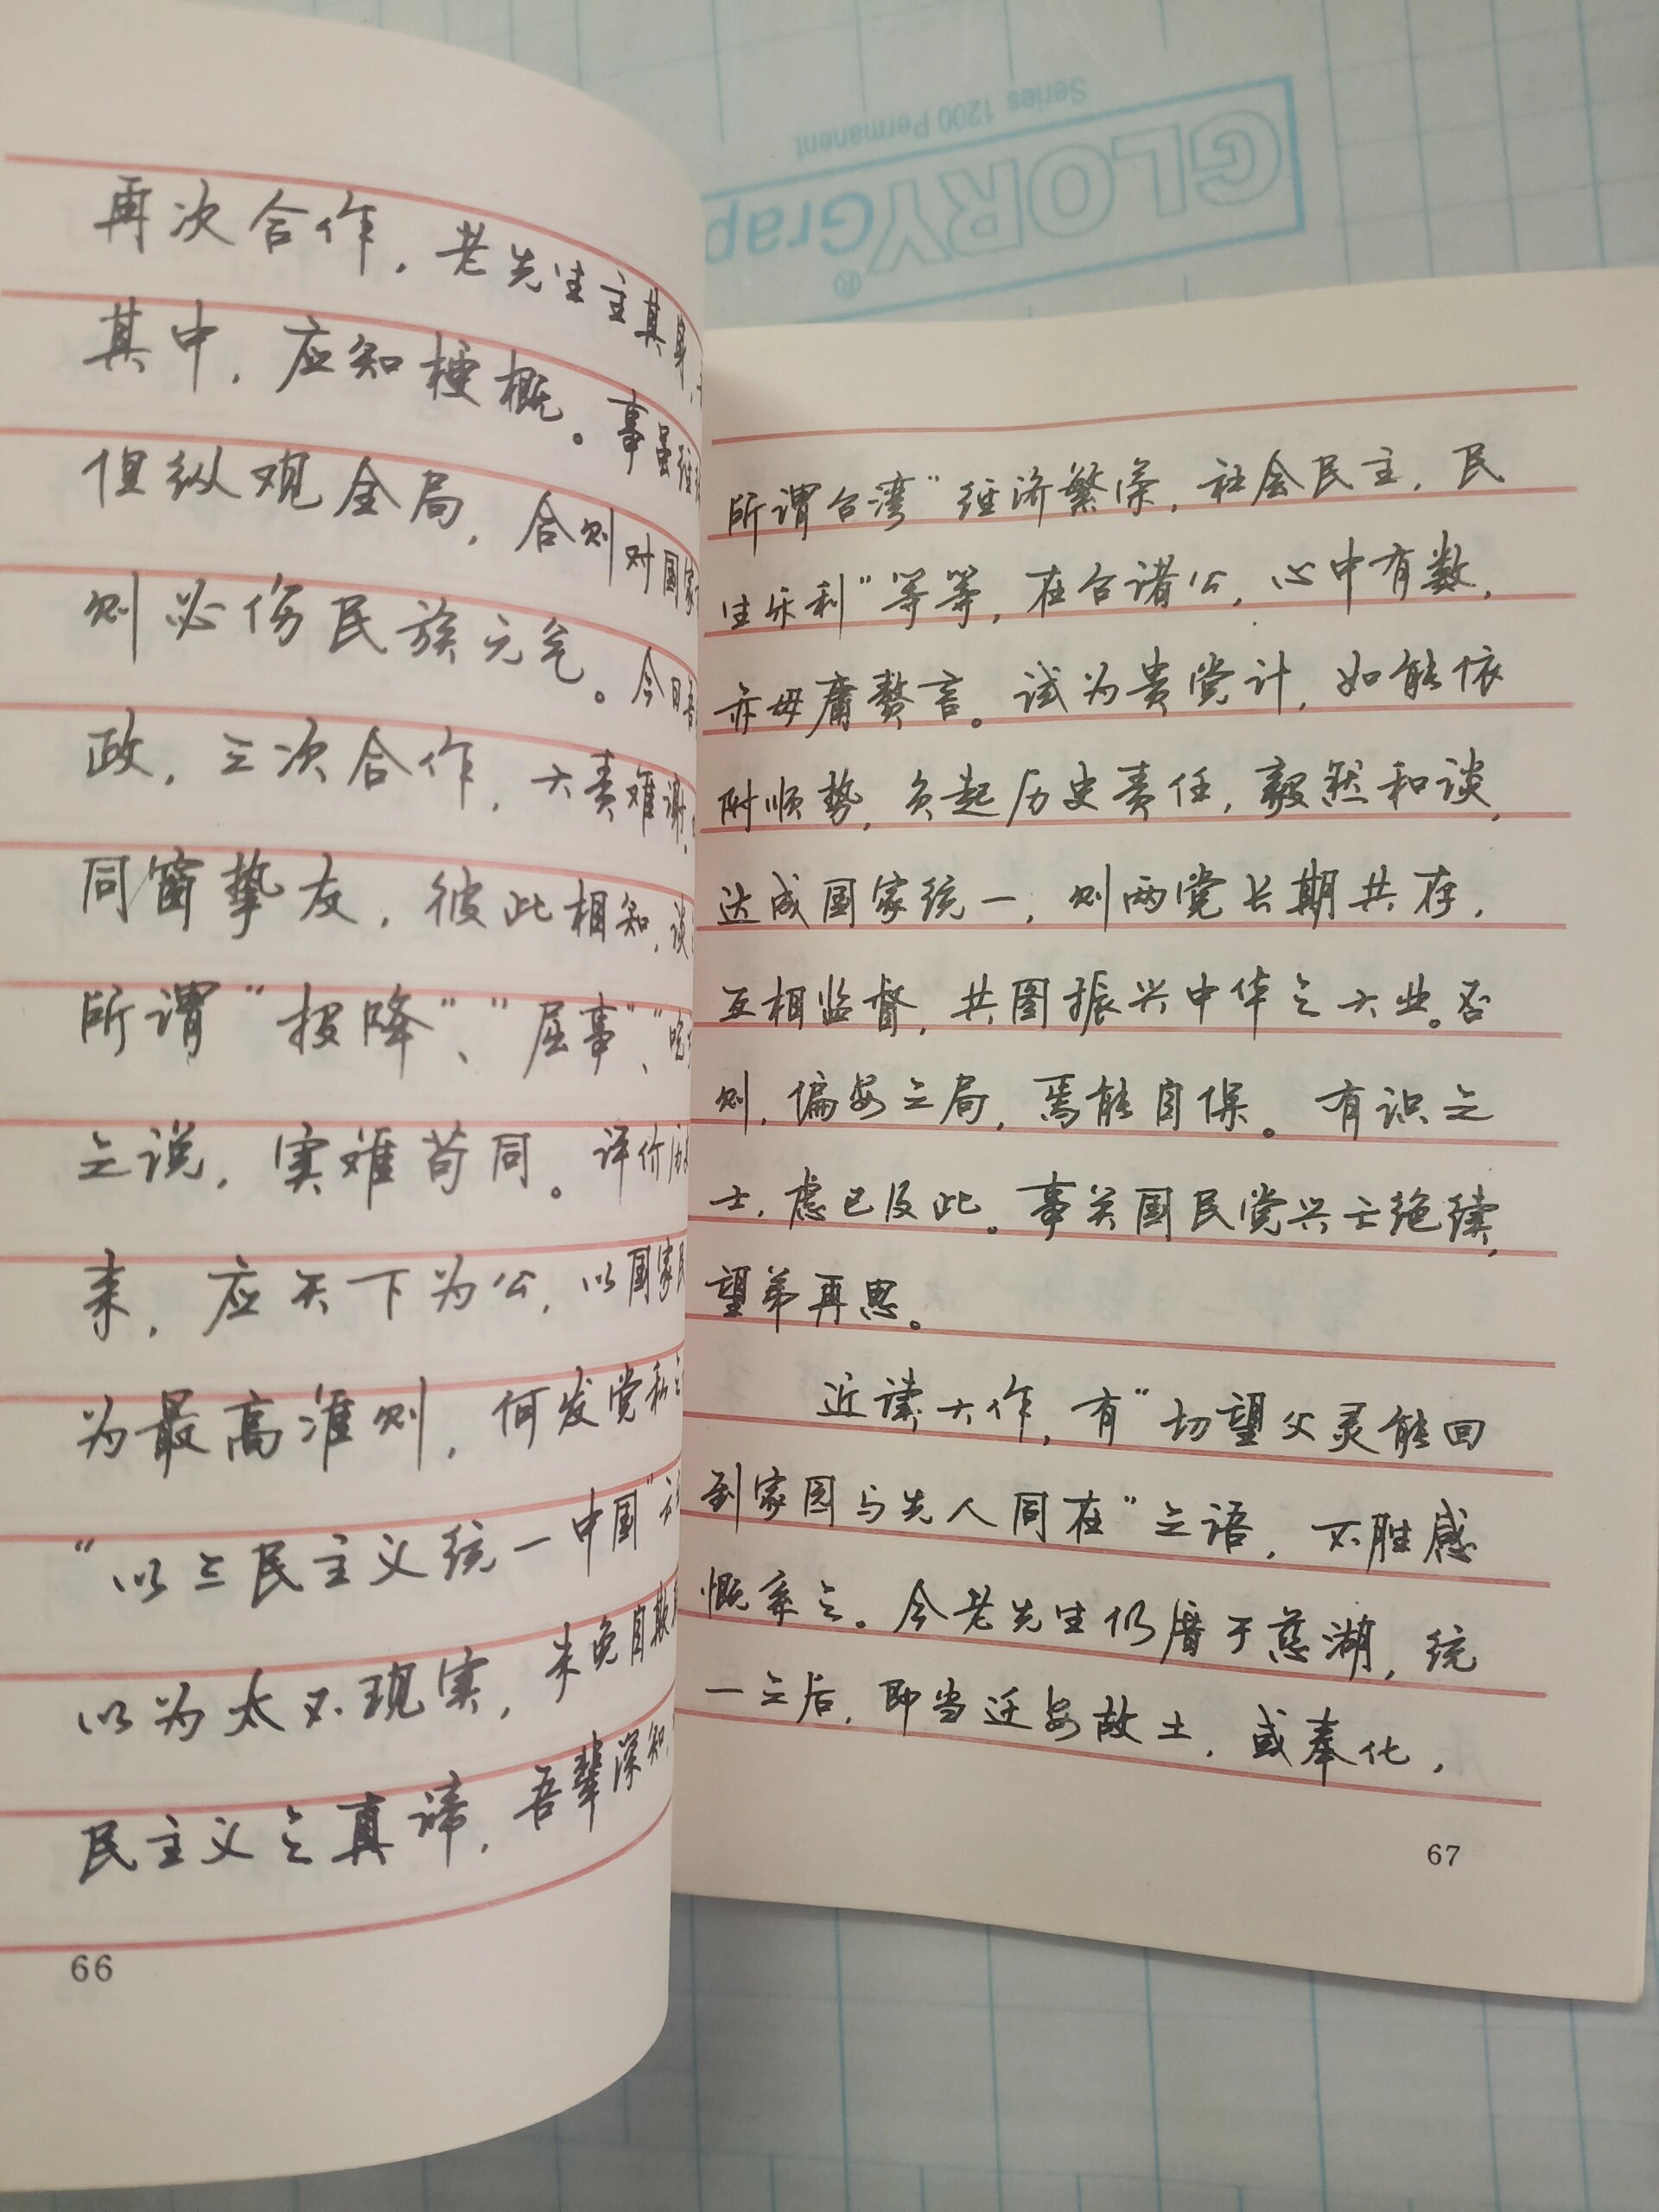 再次合作，老先生主其事，
其中，应知梗概。事虽
但纵观全局，合则对国家
则必伤民族元气。今日吾
政，三次合作，大责难谢。
同窗挚友，彼此相知，谈
所谓“投降”、“屈事”、“吃
之说，实难苟同。评价历
来，应天下为公，以国家民
为最高准则，何发党私之
“以三民主义统一中国”
以为太不现实，未免自欺
民主义之真谛，吾辈深知，
66
Series 1200 Permanent
GLORYGrap
®
所谓台湾“经济繁荣，社会民主，民
生乐利”等等，在台诸公，心中有数，
亦毋庸赘言。试为贵党计，如能依
时顺势，负起历史责任，毅然和谈，
达成国家统一，则两党长期共存，
互相监督，共图振兴中华之大业。否
则，偏安之局，焉能自保。有识之
士，虑已及此。事关国民党兴亡绝续，
望弟再思。
近读大作，有“切望父灵能回
到家园与先人同在”之语，不胜感
慨系之。今老先生仍厝于慈湖，统
一之后，即当迁安故土，或奉化，
67